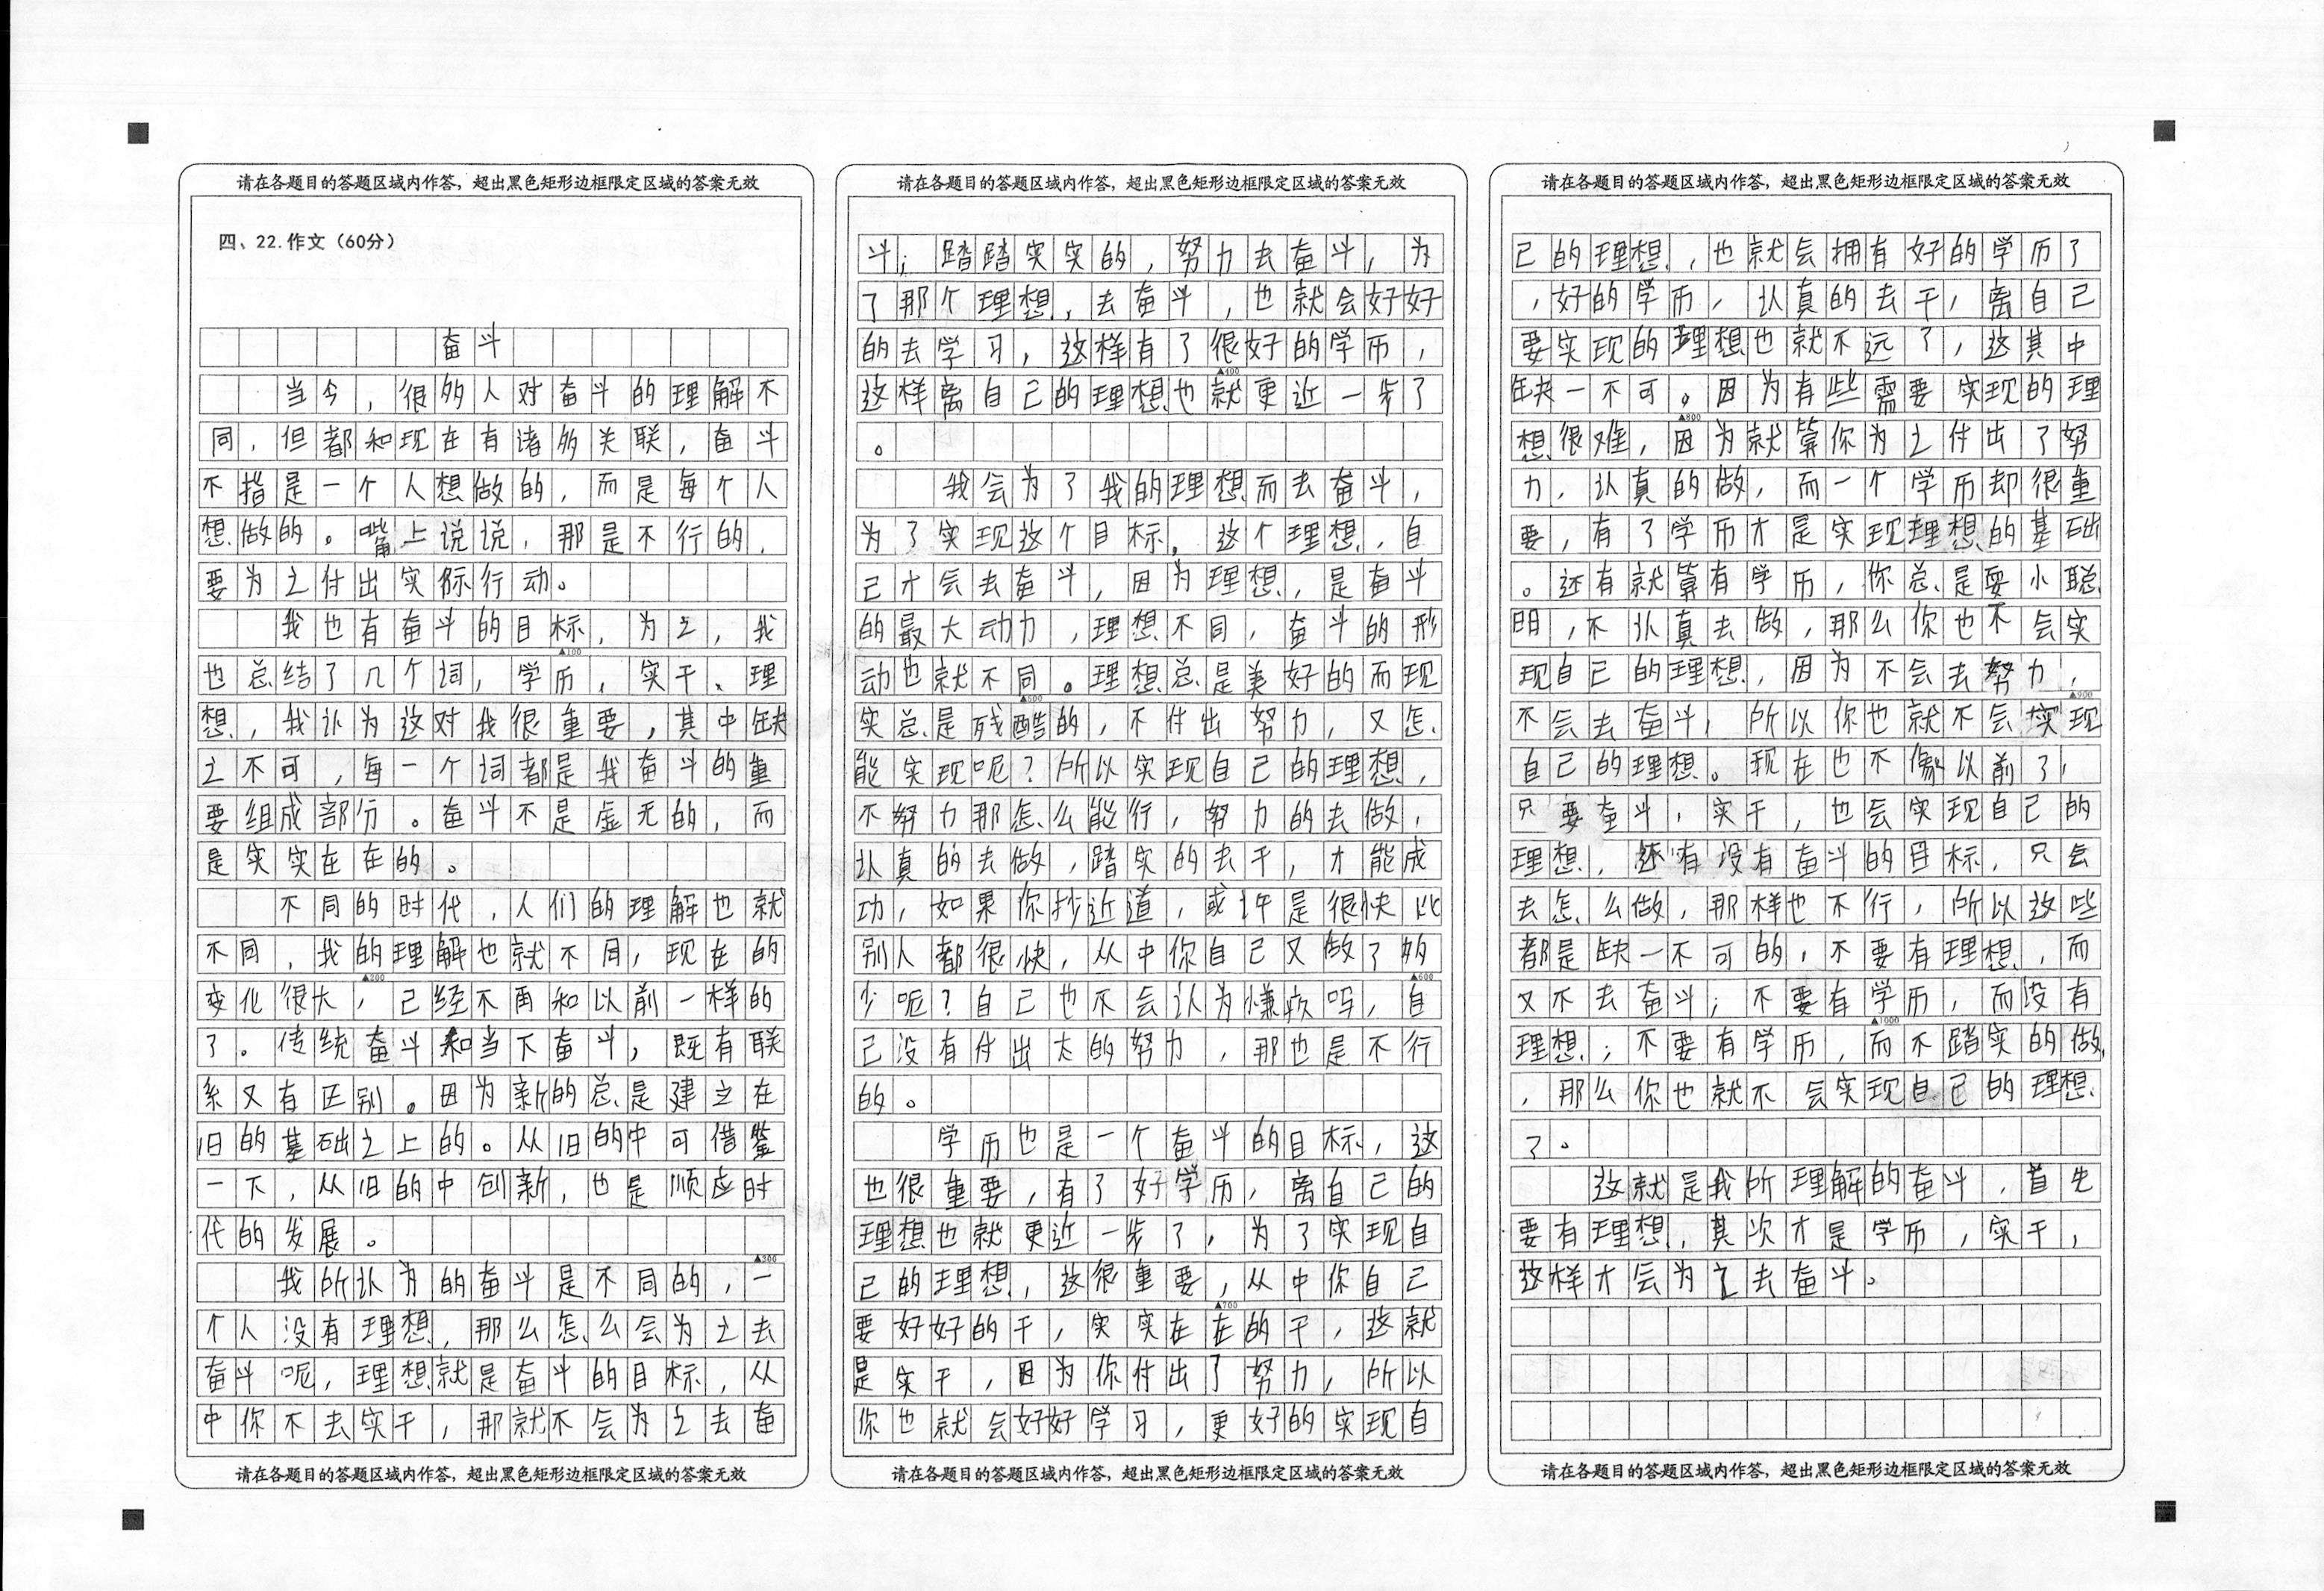 请在各题目的答题区域内作答，超出黑色矩形边框限定区域的答案无效
四、22.作文（60分）
奋斗
当今，很多人对奋斗的理解不
同，但都和现在有诸多关联，奋斗
不指是一个人想做的，而是每个人
想做的。嘴上说说，那是不行的，
要为之付出实际行动。
我也有奋斗的目标，为之，我
▲100
也总结了几个词，学历，实干、理
想，我认为这对我很重要，其中缺
之不可，每一个词都是我奋斗的重
要组成部分。奋斗不是虚无的，而
是实实在在的。
不同的时代，人们的理解也就
不同，我的理解也就不同，现在的
▲200
变化很大，己经不再和以前一样的
了。传统奋斗和当下奋斗，既有联
系又有区别。因为新的总是建立在
旧的基础之上的。从旧的中可借鉴
一下，从旧的中创新，也是顺应时
代的发展。
▲300
我所认为的奋斗是不同的，一
个人没有理想，那么怎么会为之去
奋斗呢，理想就是奋斗的目标，从
中你不去实干，那就不会为之去奋
请在各题目的答题区域内作答，超出黑色矩形边框限定区域的答案无效
请在各题目的答题区域内作答，超出黑色矩形边框限定区域的答案无效
斗；踏踏实实的，努力去奋斗，为
了那个理想，去奋斗，也就会好好
的去学习，这样有了很好的学历，
▲400
这样离自己的理想也就更近一步了
。
我会为了我的理想而去奋斗，
为了实现这个目标，这个理想，自
己才会去奋斗，因为理想，是奋斗
的最大动力，理想不同，奋斗的形
动也就不同。理想总是美好的而现
▲500
实总是残酷的，不付出努力，又怎
能实现呢？所以实现自己的理想，
不努力那怎么能行，努力的去做，
认真的去做，踏实的去干，才能成
功，如果你抄近道，或许是很快比
别人都很快，从中你自己又做了多
▲600
少呢？自己也不会认为嫌疚吗，自
己没有付出太的努力，那也是不行
的。
学历也是一个奋斗的目标，这
也很重要，有了好学历，离自己的
理想也就更近一步了，为了实现自
己的理想，这很重要，从中你自己
▲700
要好好的干，实实在在的干，这就
是实干，因为你付出了努力，所以
你也就会好好学习，更好的实现自
请在各题目的答题区域内作答，超出黑色矩形边框限定区域的答案无效
请在各题目的答题区域内作答，超出黑色矩形边框限定区域的答案无效
己的理想，也就会拥有好的学历了
，好的学历，认真的去干，离自己
要实现的理想也就不远了，这其中
缺一不可。因为有些需要实现的理
▲800
想很难，因为就算你为之付出了努
力，认真的做，而一个学历却很重
要，有了学历才是实现理想的基础
。还有就算有学历，你总是耍小聪
明，不认真去做，那么你也不会实
现自己的理想，因为不会去努力，
▲900
不会去奋斗，所以你也就不会实现
自己的理想。现在也不像以前了，
只要奋斗，实干，也会实现自己的
理想，还有没有奋斗的目标，只会
去怎么做，那样也不行，所以这些
都是缺一不可的，不要有理想，而
又不去奋斗；不要有学历，而没有
▲1000
理想；不要有学历，而不踏实的做
，那么你也就不会实现自己的理想
了。
这就是我所理解的奋斗，首先
要有理想，其次才是学历，实干，
这样才会为之去奋斗。
请在各题目的答题区域内作答，超出黑色矩形边框限定区域的答案无效